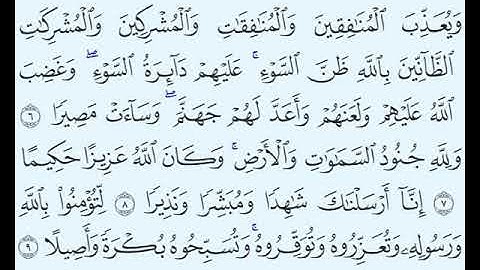 وَيُعَذِّبَ الْمُنَافِقِينَ وَالْمُنَافِقَاتِ وَالْمُشْرِكِينَ وَالْمُشْرِكَاتِ
الظَّانِّينَ بِاللَّهِ ظَنَّ السَّوْءِ ۚ عَلَيْهِمْ دَائِرَةُ السَّوْءِ ۖ وَغَضِبَ
اللَّهُ عَلَيْهِمْ وَلَعَنَهُمْ وَأَعَدَّ لَهُمْ جَهَنَّمَ ۖ وَسَاءَتْ مَصِيرًا ٦
وَلِلَّهِ جُنُودُ السَّمَاوَاتِ وَالْأَرْضِ ۚ وَكَانَ اللَّهُ عَزِيزًا حَكِيمًا
٧ إِنَّا أَرْسَلْنَاكَ شَاهِدًا وَمُبَشِّرًا وَنَذِيرًا ٨ لِتُؤْمِنُوا بِاللَّهِ
وَرَسُولِهِ وَتُعَزِّرُوهُ وَتُوَقِّرُوهُ ۚ وَتُسَبِّحُوهُ بُكْرَةً وَأَصِيلًا ٩